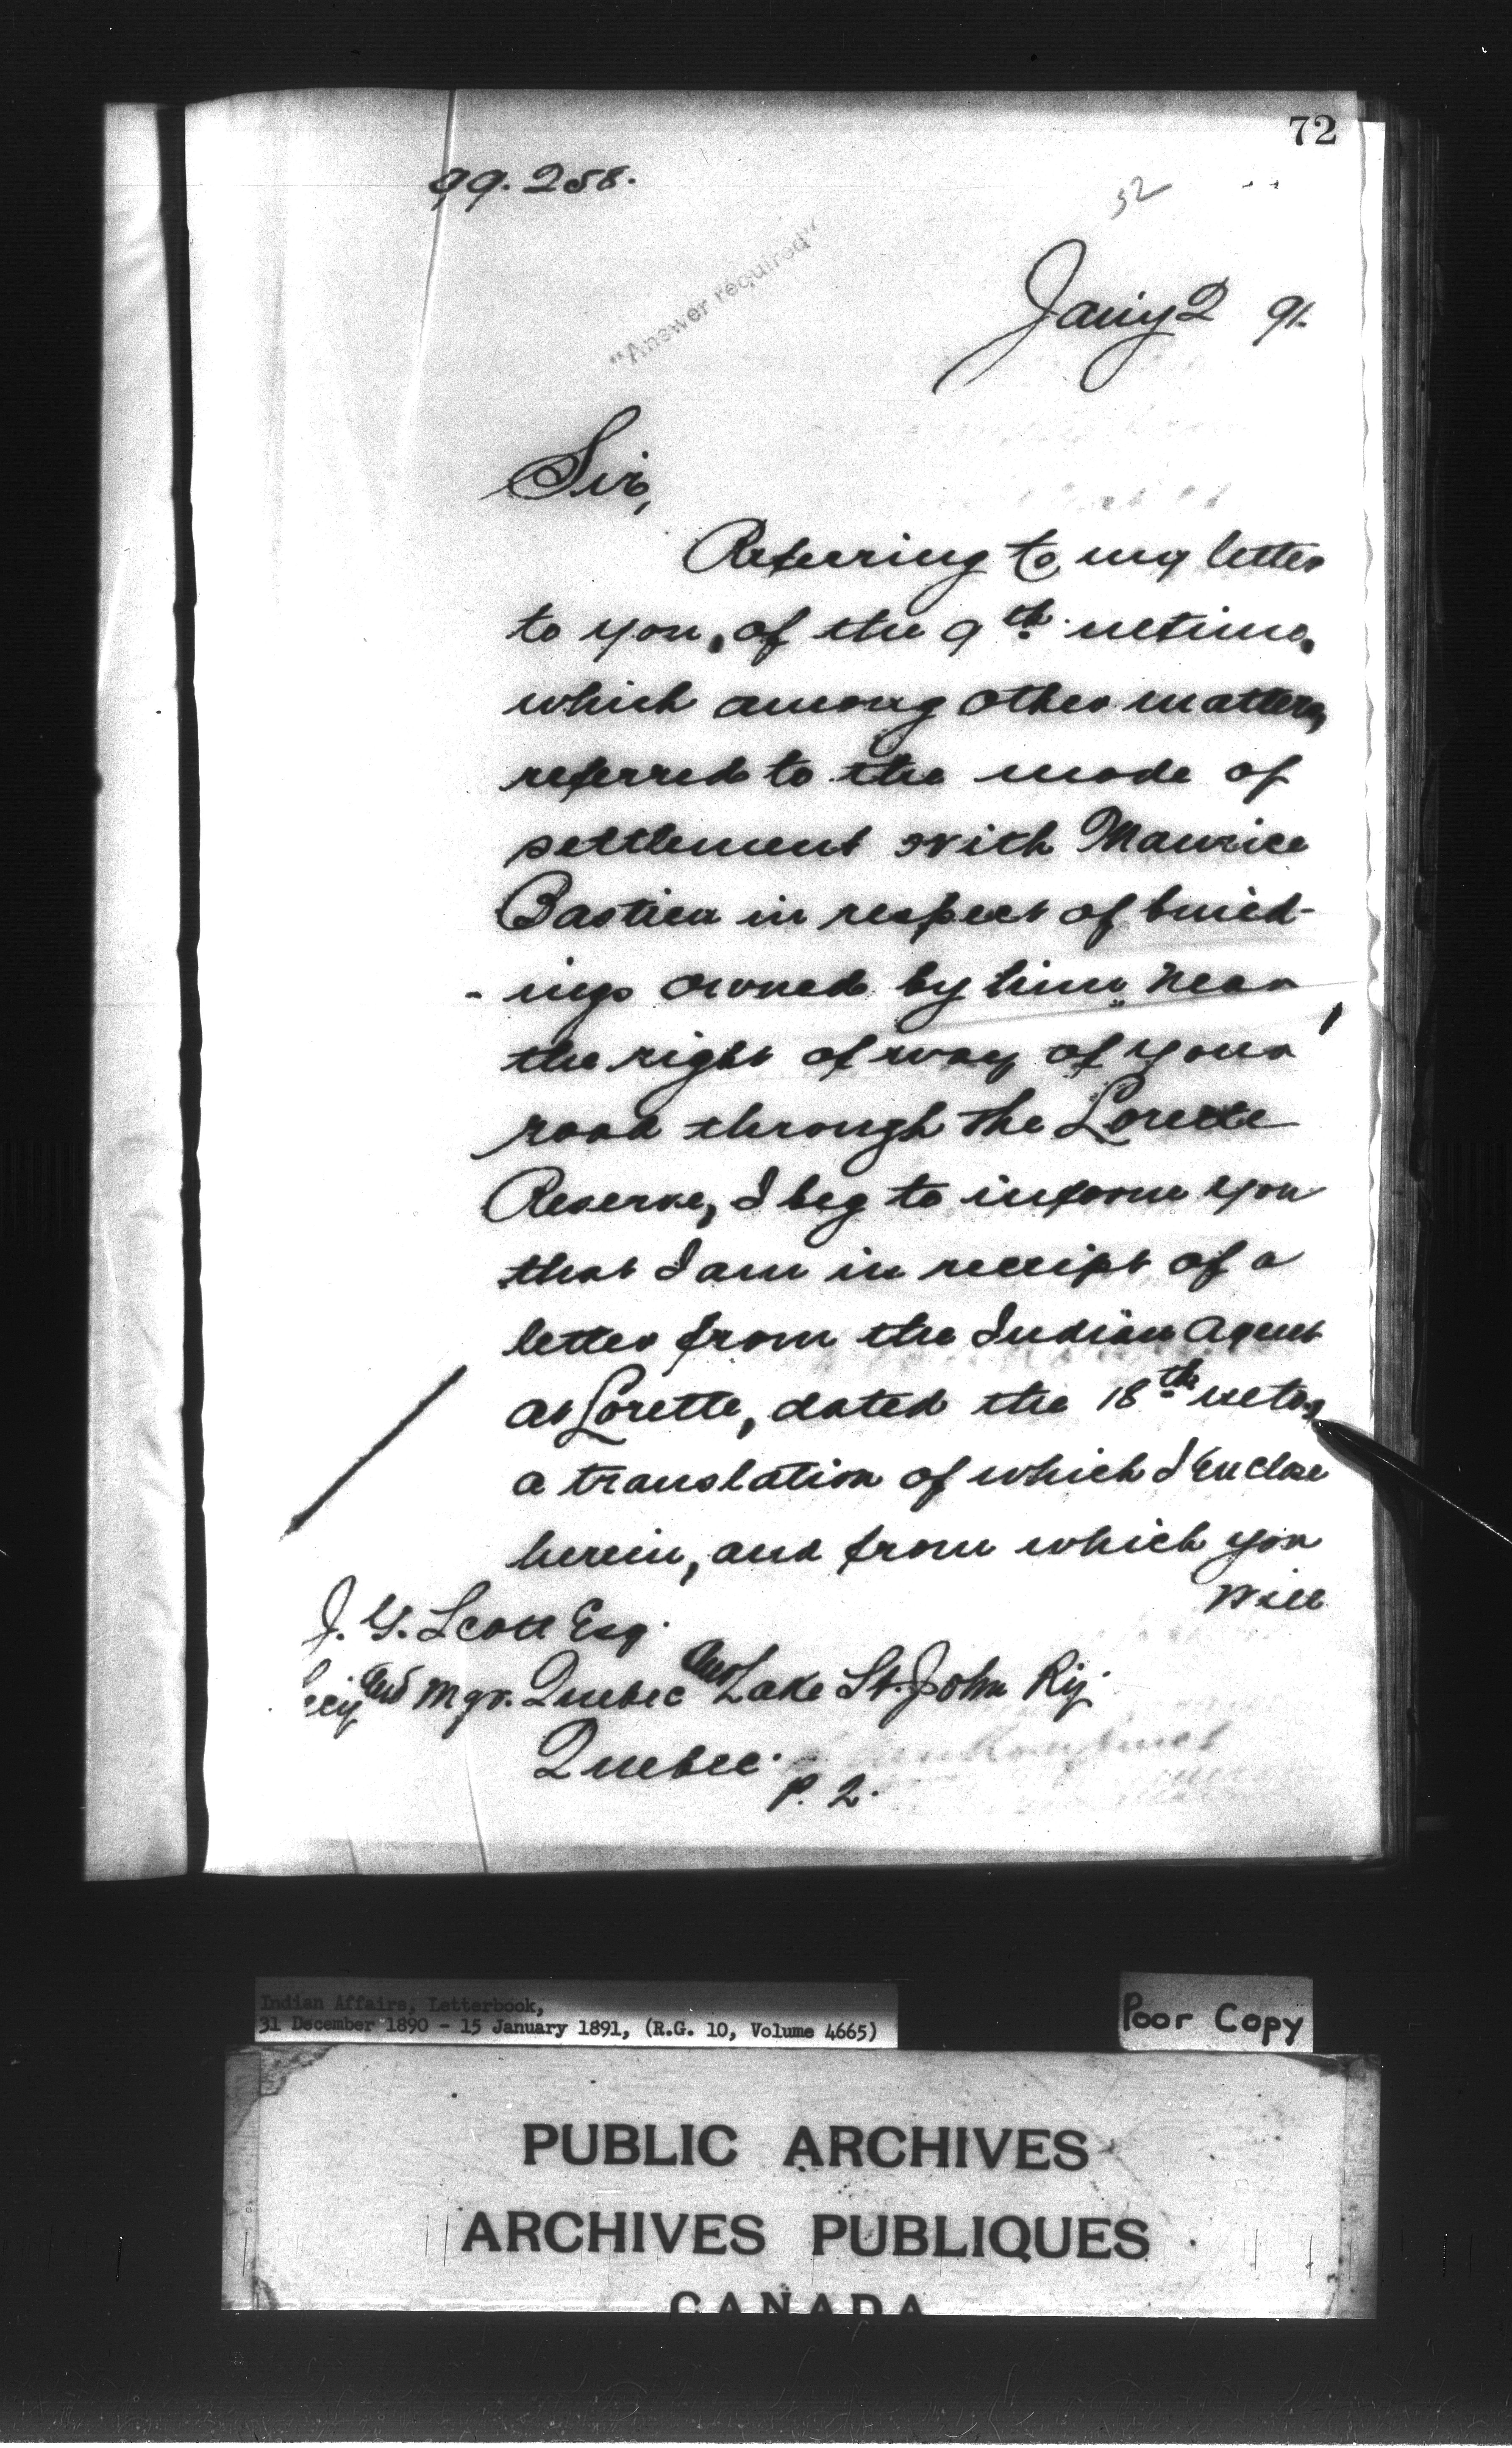 72
99.258.
32
"Answer required"
Jany 2 91.
Sir,
Referring to my letter
to you, of the 9th ultimo,
which among other matters,
referred to the mode of
settlement with Maurice
Bastien in respect of build-
-ings owned by him near
the right of way of your
road through the Lorette
Reserve, I beg to inform you
that I am in receipt of a
letter from the Indian Agent
at Lorette, dated the 18th ulto,
a translation of which I enclose
herein, and from which you
will
J. G. Scott Esq.
Secy and Mgr. Quebec and Lake St. John Ry
Quebec.
P. 2.
Indian Affairs, Letterbook,
31 December 1890 - 15 January 1891, (R.G. 10, Volume 4665)
Poor Copy
PUBLIC ARCHIVES
ARCHIVES PUBLIQUES
CANADA